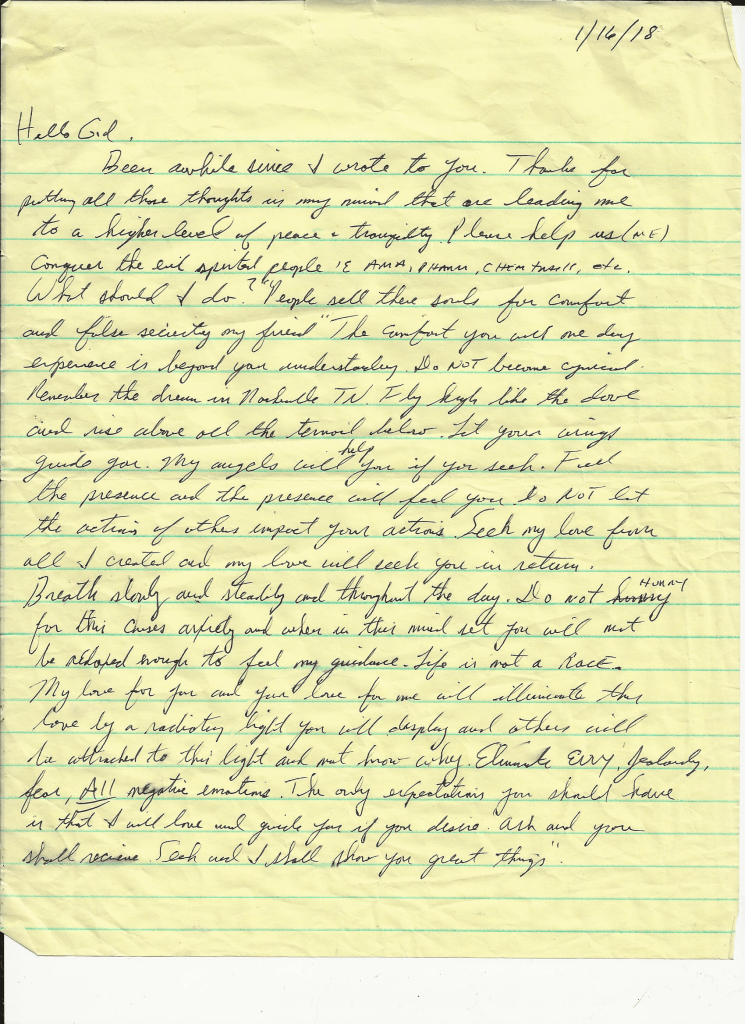 1/16/18
Hello God,
Been awhile since I wrote to you. Thanks for
putting all those thoughts in my mind that are leading me
to a higher level of peace & tranquilty. Please help us (ME)
Conquer the evil spirited people IE AMA, PHARM, CHEMTRAILS, etc.
What should I do? "People sell there souls for comfort
and false security my friend" The comfort you will one day
experience is beyond your understanding. Do NOT become cynical.
Remember the dream in Nashville TN. Fly high like the dove
and rise above all the termoil below. Let your wings
guide you. My angels will help you if you seek. Feel
the presence and the presence will feel you. Do NOT let
the actions of others impact your actions. Seek my love from
all I created and my love will seek you in return.
Breath slowly and steadily and throughout the day. Do not HURRY
for this causes anxiety and when in this mind set you will not
be relaxed enough to feel my guidance. Life is not a RACE.
My love for you and your love for me will illuminate this
love by a radiating light you will display and others will
be attracted to this light and not know why. Eliminate ENVY, Jealousy,
fear, All negative emotions. The only expectations you should have
is that I will love and guide you if you desire. Ask and you
shall recieve. Seek and I shall show you great things".